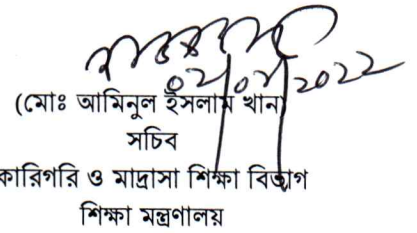 (মোঃ আমিনুল ইসলাম খান)
সচিব
কারিগরি ও মাদ্রাসা শিক্ষা বিভাগ
শিক্ষা মন্ত্রণালয়